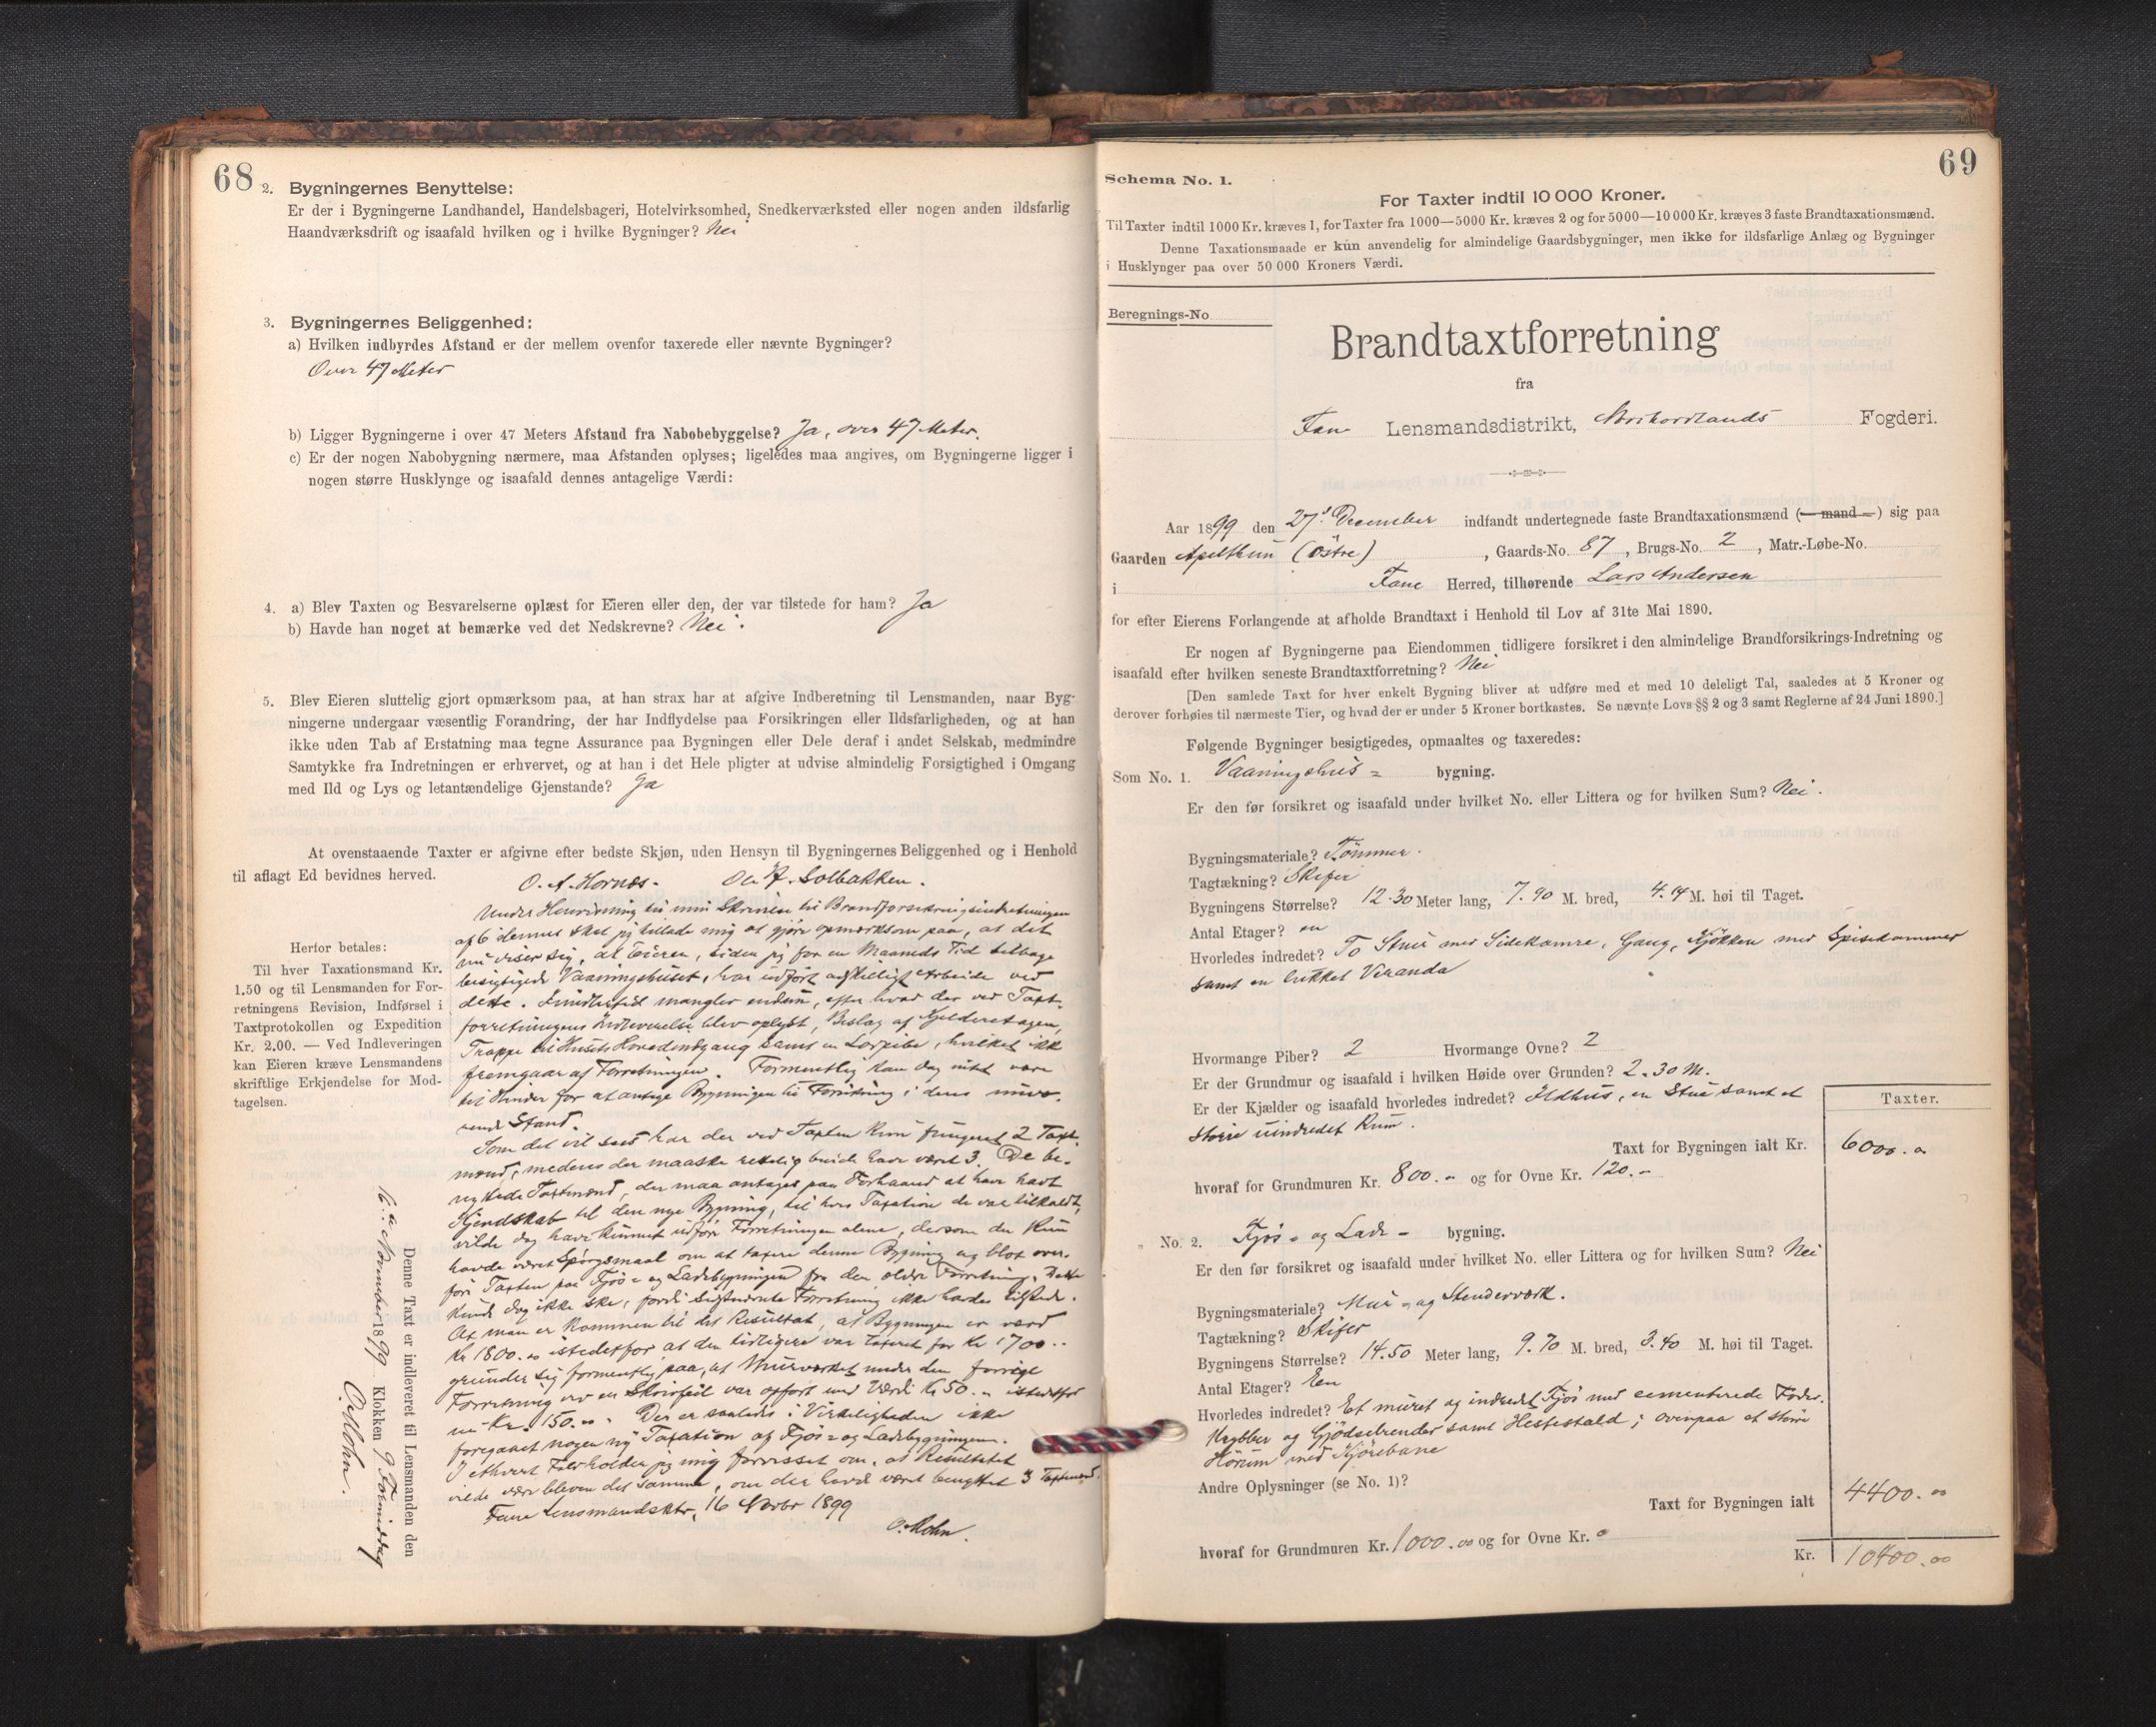 68
2. Bygningernes Benyttelse:
Er der i Bygningerne Landhandel, Handelsbageri, Hotelvirksomhed, Snedkerværksted eller nogen anden ildsfarlig
Haandværksdrift og isaafald hvilken og i hvilke Bygninger? Nei
3. Bygningernes Beliggenhed:
a) Hvilken indbyrdes Afstand er der mellem ovenfor taxerede eller nævnte Bygninger?
Over 47 Meter
b) Ligger Bygningerne i over 47 Meters Afstand fra Nabobebyggelse? Ja, over 47 Meter.
c) Er der nogen Nabobygning nærmere, maa Afstanden oplyses; ligeledes maa angives, om Bygningerne ligger i
nogen større Husklynge og isaafald dennes antagelige Værdi:
4. a) Blev Taxten og Besvarelserne oplæst for Eieren eller den, der var tilstede for ham? Ja
b) Havde han noget at bemærke ved det Nedskrevne? Nei.
5. Blev Eieren sluttelig gjort opmærksom paa, at han strax har at afgive Indberetning til Lensmanden, naar Byg-
ningerne undergaar væsentlig Forandring, der har Indflydelse paa Forsikringen eller Ildsfarligheden, og at han
ikke uden Tab af Erstatning maa tegne Assurance paa Bygningen eller Dele deraf i andet Selskab, medmindre
Samtykke fra Indretningen er erhvervet, og at han i det Hele pligter at udvise almindelig Forsigtighed i Omgang
med Ild og Lys og letantændelige Gjenstande? Ja
At ovenstaaende Taxter er afgivne efter bedste Skjøn, uden Hensyn til Bygningernes Beliggenhed og i Henhold
til aflagt Ed bevidnes herved.
O. A. Hornæs. Ole A. Solbakken.
Under Henvisning til min Skrivelse til Brandforsikringsindretningen
af 6 dennes skal jeg tillade mig at gjøre opmærksom paa, at det
nu viser sig, at Eieren, siden jeg for en Maaneds Tid tilbage
besigtigede Vaaningshuset, har udført adskilligt Arbeide ved
dette. Imidlertid mangler endnu, efter hvad der ved Taxt-
forretningens Indleverelse blev oplyst, Beslag af Kjelderetagen,
Trappe til Husets Hovedindgang samt en Lorpibe, hvilket ikke
fremgaar af Forretningen. Formentlig kan dog intet være
til Hinder for at antage Bygningen til Forsikring i dens nuvæ-
rende Stand.
Som det vil sees har der ved Taxten kun fungeret 2 Taxt-
mænd, medens der maaske rettelig burde have været 3. De be-
nyttede Taxtmænd, der maa antages paa Forhaand at have havt
Kjendskab til den nye Bygning, til hvis Taxation de var tilkaldt,
vilde dog have kunnet udføre Forretningen alene, dersom der kun
havde været Spørgsmaal om at taxere denne Bygning og blot over-
føre Taxten paa Fjøs- og Ladebygningen fra den ældre Forretning. Dette
kunde dog ikke ske, fordi sidstnævnte Forretning ikke havdes tilstede.
At man er kommen til det Resultat, at Bygningen er værd
Kr 1800.00 istedetfor at den tidligere var taxeret for Kr 1700..
grunder sig formentlig paa, at Murværket under den forrige
Forretning ved en Skrivfeil var opført med Værdi Kr 50.00 istedetfor
nu Kr. 150.00. Der er saaledes i Virkeligheden ikke
foregaaet nogen ny Taxation af Fjøs- og Ladebygningen.
I ethvert Fald holder jeg mig forvisset om, at Resultatet
vilde være bleven det samme, om der havde været benyttet 3 Taxtmænd.
Fane Lensmandsktr, 16 Novbr 1899
O. Mohn.
Herfor betales:
Til hver Taxationsmand Kr.
1.50 og til Lensmanden for For-
retningens Revision, Indførsel i
Taxtprotokollen og Expedition
Kr. 2.00. — Ved Indleveringen
kan Eieren kræve Lensmandens
skriftlige Erkjendelse for Mod-
tagelsen.
Denne Taxt er indleveret til Lensmanden den
16de November 1899 Klokken 9 Formiddag
O. Mohn.
69
Schema No. 1.
For Taxter indtil 10 000 Kroner.
Til Taxter indtil 1000 Kr. kræves 1, for Taxter fra 1000—5000 Kr. kræves 2 og for 5000—10 000 Kr. kræves 3 faste Brandtaxationsmænd.
Denne Taxationsmaade er kun anvendelig for almindelige Gaardsbygninger, men ikke for ildsfarlige Anlæg og Bygninger
i Husklynger paa over 50 000 Kroners Værdi.
Beregnings-No
Brandtaxtforretning
fra
Fane Lensmandsdistrikt, Nordhordlands Fogderi.
Aar 1899 den 27de December indfandt undertegnede faste Brandtaxationsmænd (— mand —) sig paa
Gaarden Apelthun (Østre), Gaards-No. 87, Brugs-No. 2, Matr.-Løbe-No.
i Fane Herred, tilhørende Lars Andersen
for efter Eierens Forlangende at afholde Brandtaxt i Henhold til Lov af 31te Mai 1890.
Er nogen af Bygningerne paa Eiendommen tidligere forsikret i den almindelige Brandforsikrings-Indretning og
isaafald efter hvilken seneste Brandtaxtforretning? Nei
[Den samlede Taxt for hver enkelt Bygning bliver at udføre med et med 10 deleligt Tal, saaledes at 5 Kroner og
derover forhøies til nærmeste Tier, og hvad der er under 5 Kroner bortkastes. Se nævnte Lovs §§ 2 og 3 samt Reglerne af 24 Juni 1890.]
Følgende Bygninger besigtigedes, opmaaltes og taxeredes:
Som No. 1. Vaaningshus- bygning.
Er den før forsikret og isaafald under hvilket No. eller Littera og for hvilken Sum? Nei.
Bygningsmateriale? Tømmer.
Tagtækning? Skifer
Bygningens Størrelse? 12.30 Meter lang, 7.90 M. bred, 4.14 M. høi til Taget.
Antal Etager? en
Hvorledes indredet? To Stuer med Sidekamre, Gang, Kjøkken med Spisekammer
samt en lukket Veranda
Hvormange Piber? 2 Hvormange Ovne? 2
Er der Grundmur og isaafald i hvilken Høide over Grunden? 2.30 M.
Er der Kjælder og isaafald hvorledes indredet? Ildhus, en Stue samt et
større uindredet Rum.
Taxter.
Taxt for Bygningen ialt Kr. 6000.00
hvoraf for Grundmuren Kr. 800.00 og for Ovne Kr. 120.00
No. 2. Fjøs- og Lade- bygning.
Er den før forsikret og isaafald under hvilket No. eller Littera og for hvilken Sum? Nei
Bygningsmateriale? Mur- og Stenderværk.
Tagtækning? Skifer
Bygningens Størrelse? 14.50 Meter lang, 9.70 M. bred, 3.40 M. høi til Taget.
Antal Etager? Een
Hvorledes indredet? Et muret og indredet Fjøs med cementerede Foder-
krybber og Gjødselrender samt Hestestald; ovenpaa et større
Hørum med Kjørebane
Andre Oplysninger (se No. 1)?
Taxt for Bygningen ialt 4400.00
hvoraf for Grundmuren Kr. 1000.00 og for Ovne Kr. 0
Kr. 10400.00